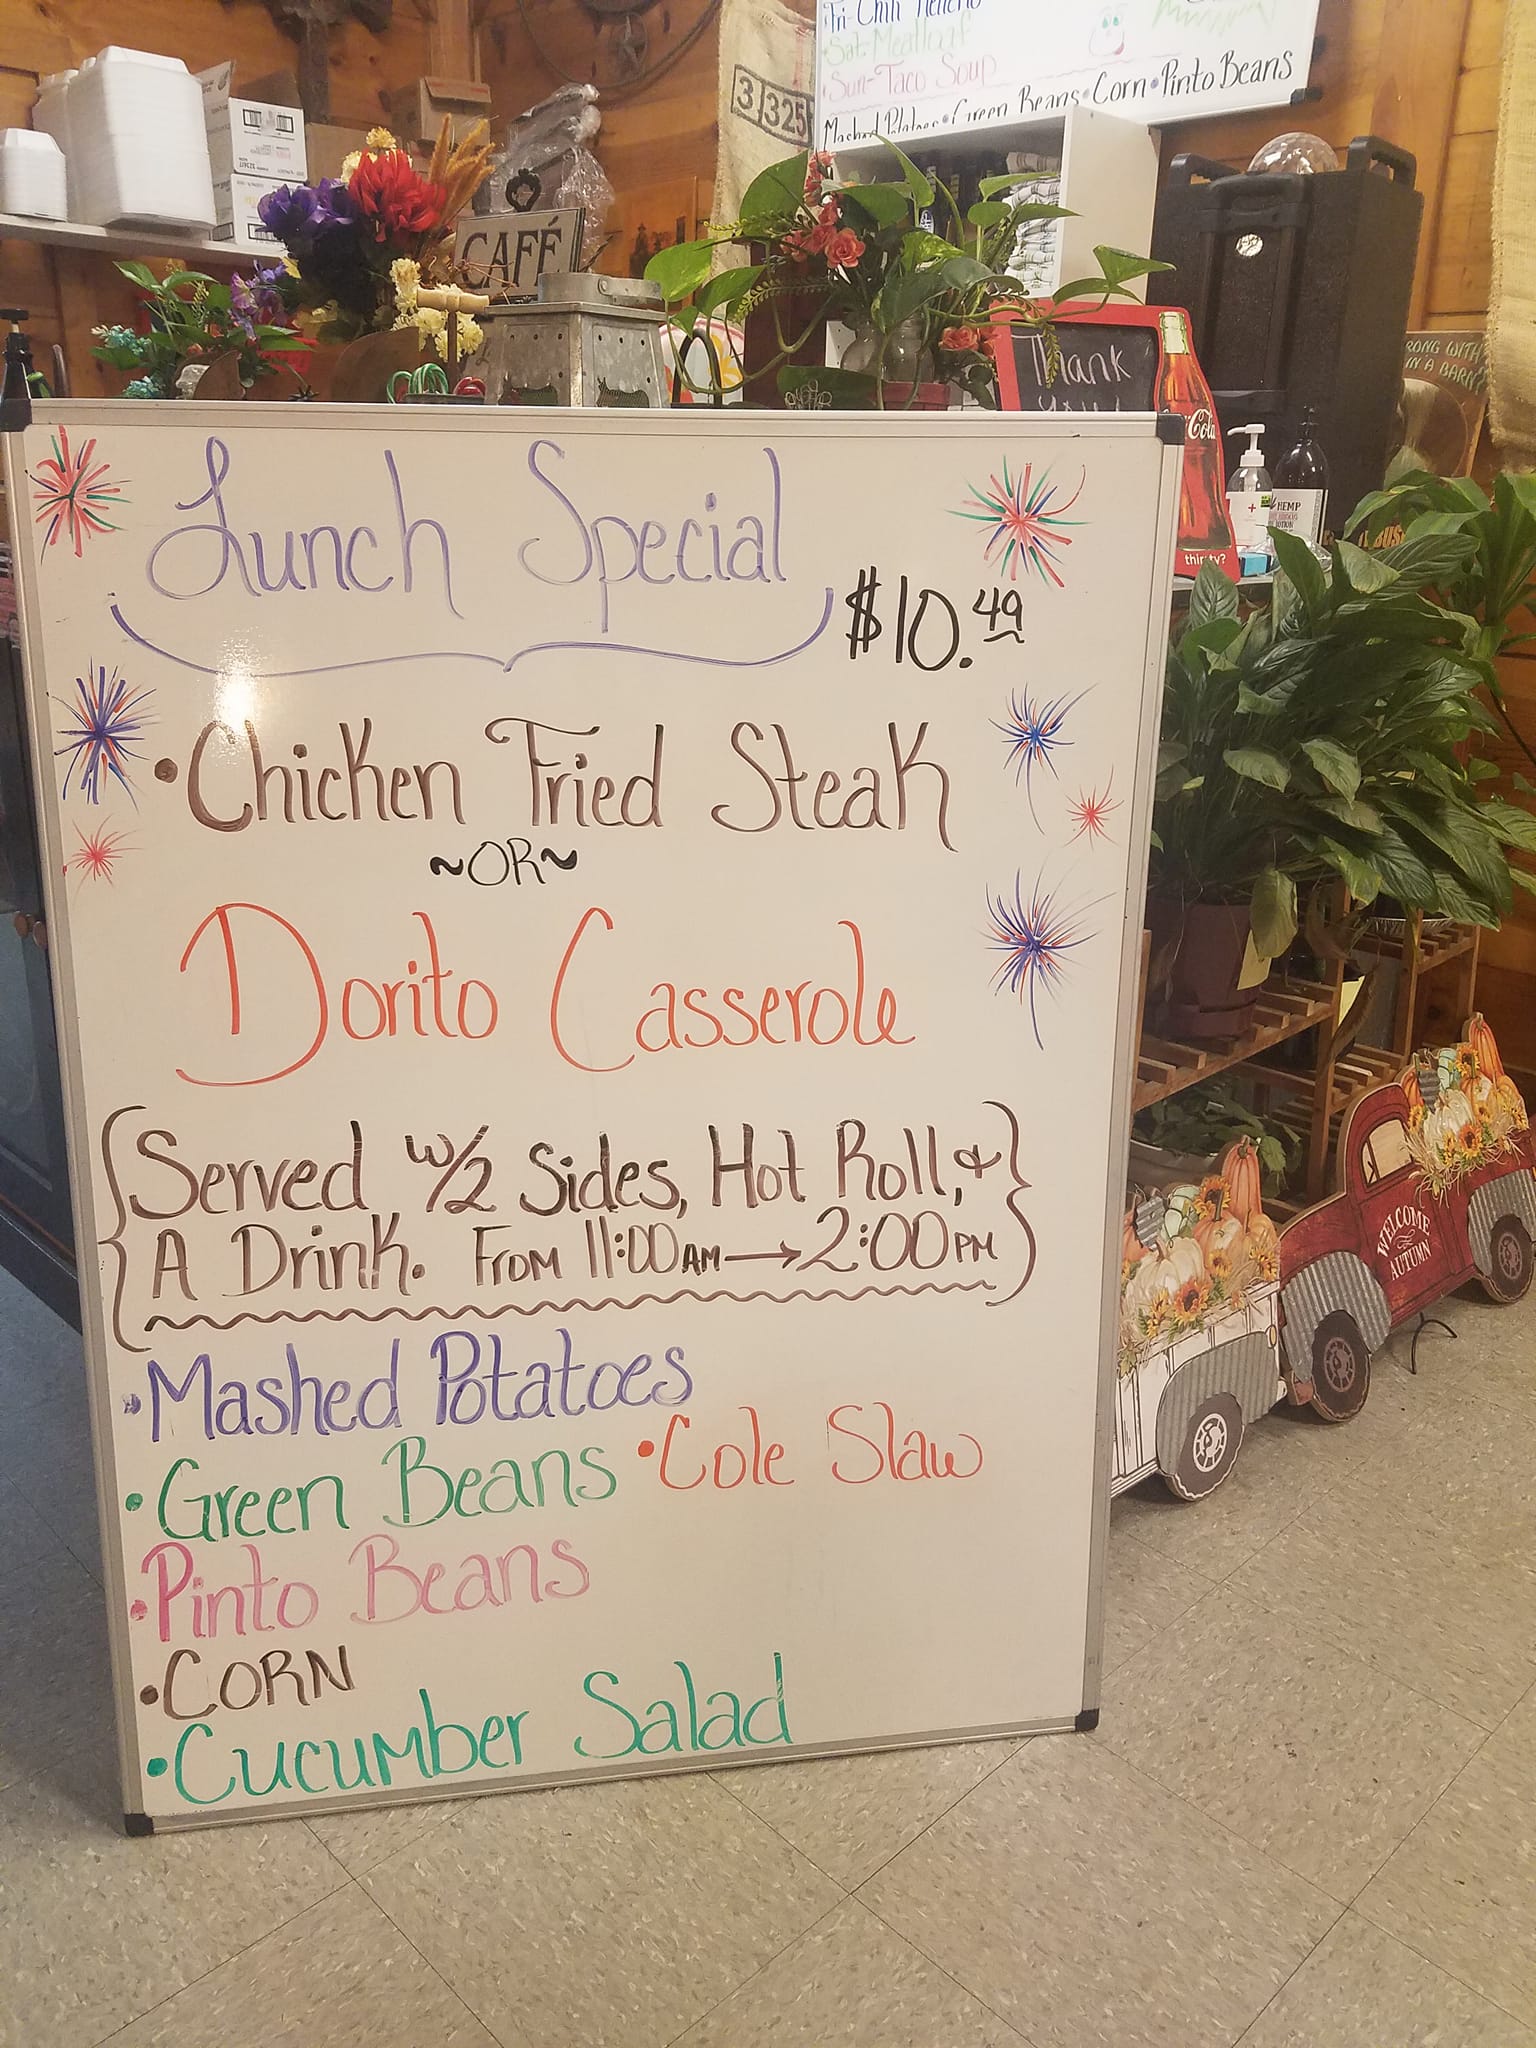 Fri-Chili Relleno
•Sat-Meatloaf
•Sun-Taco Soup
Mashed Potatoes•Green Beans•Corn•Pinto Beans
3 325
CAFÉ
Thank
you!
Cola
thirsty?
HEMP
RONG WITH
IN A BARN?
Lunch Special
$10.49
•Chicken Fried Steak
~OR~
Dorito Casserole
Served w/2 Sides, Hot Roll, &
A Drink. From 11:00AM→2:00PM
•Mashed Potatoes
•Green Beans •Cole Slaw
•Pinto Beans
•CORN
•Cucumber Salad
WELCOME
AUTUMN